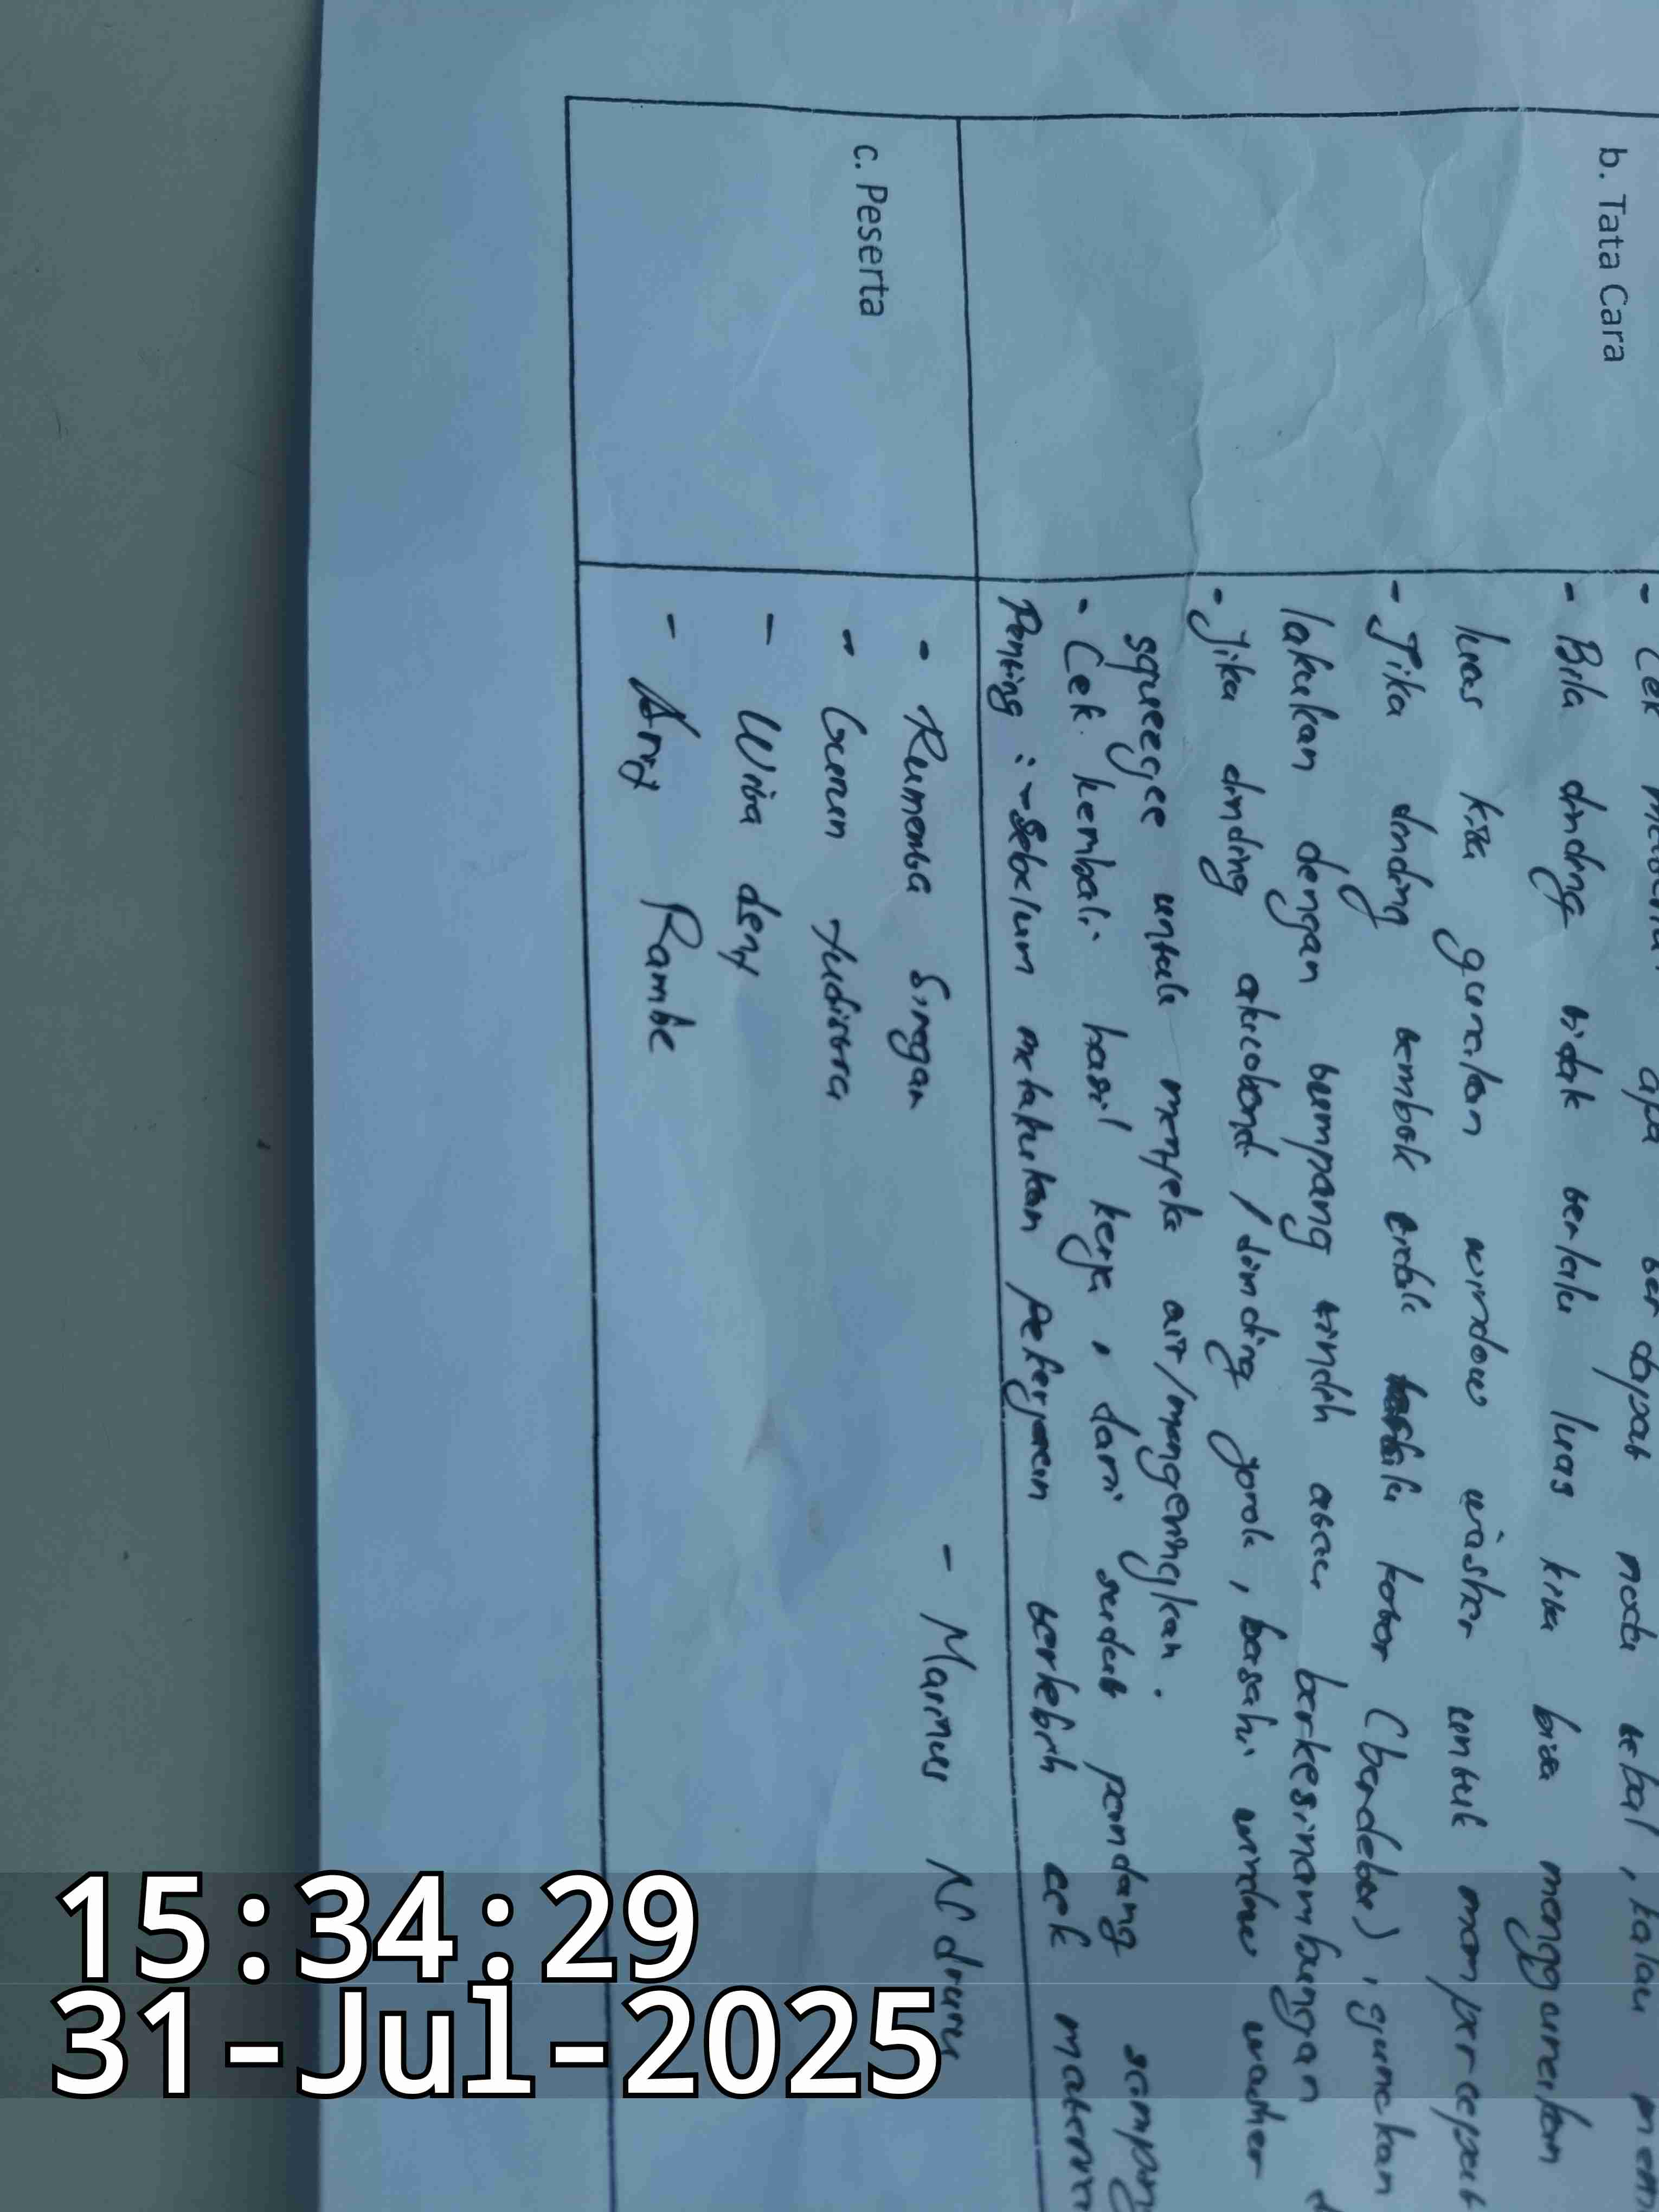 b. Tata Cara
- Cek apa noda tebal, kalau
- Bila dinding tidak terlalu luas kita bisa menggunakan
luas kita gunakan window washer untuk mempercepat
- Jika dinding tembok tidak kotor (berdebu), gunakan
lakukan dengan tumpang tindih atau berkesinambungan
- Jika dinding alucobond / dinding jorok, basahi window washer
squeegee untuk menyeka air/mengeringkan.
- Cek kembali hasil kerja, dari sudut pandang samping
Penting : - Sebelum melakukan pekerjaan terlebih cek
c. Peserta
- Rumenba Siregar
- Marinus Ndruru
- Gunun Yudistira
- Wira deny
- Arny Rambe
15:34:29
31-Jul-2025